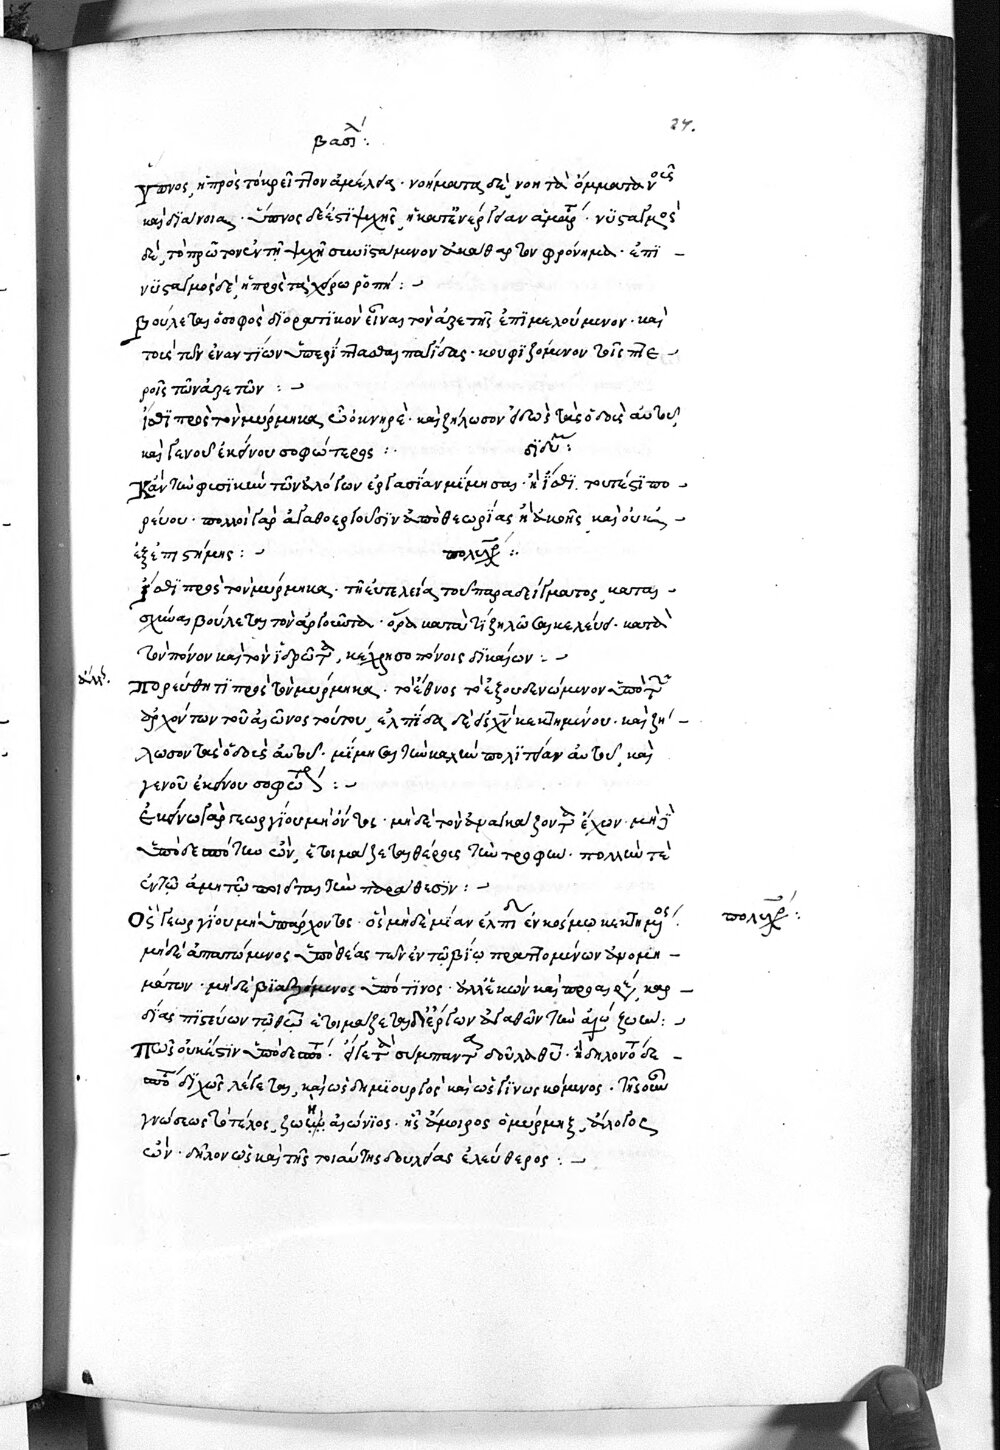 27.
βασιλ :
Ὕπνος, ἡ πρὸς τὸ κρεῖττον ἀμέλεια · νοήματα δὲ, νοητὰ ὄμματα νοεῖς
καὶ διάνοιας · ὕπνος δέ ἐστι ψυχῆς, ἡ κατ' ἐνέργειαν ἁμαρτ · νυσταγμὸς
δὲ, τὸ πρῶτον ἐν τῇ ψυχῇ συνιστάμενον ἀκάθαρτον φρόνημα · ἐπι
νυσταγμὸς δὲ, ἡ πρὸς τὰ χείρω ῥοπή :
Βούλεται ὁ σοφὸς διορατικὸν εἶναι τὸν ἀρετῆς ἐπιμελούμενον · καὶ
τοὺς τῶν ἐναντίων ὑπερίπτασθαι παγίδας · κουφιζόμενον τοῖς πτε
ροῖς τῶν ἀρετῶν :
ἴσθι πρὸς τὸν μύρμηκα ὦ ὀκνηρὲ · καὶ ζήλωσον ἰδὼν τὰς ὁδοὺς αὐτοῦ,
καὶ γενοῦ ἐκείνου σοφώτερος : διδύ :
Κἂν τὴν φυσικὴν τῶν ἀλόγων ἐργασίαν μίμησαι · ἢ ἴσθι. τουτέστι πο
ρεύου · πολλοὶ γὰρ ἀγαθοεργοῦσιν ἀπὸ θεωρίας ἢ ἀκοῆς, καὶ οὐκ
ἐξ ἐπιστήμης : πολυχρ :
ἴσθι πρὸς τὸν μύρμηκα · τῇ εὐτελείᾳ τοῦ παραδείγματος, καται
σχύναι βούλεται τὸν ἀργοῦντα · ὅρα κατὰ τί ζηλῶσαι κελεύει · κατὰ
τὸν πόνον καὶ τὸν ἱδρῶτα, κέχρησο πόνοις δικαίων :
ἄλλ.
Πορεύθητι πρὸς τὸν μύρμηκα · τὸ ἔθνος τὸ ἐξουδενώμενον ὑπὸ τ
ἀρχόντων τοῦ αἰῶνος τούτου, ἐλπίδα δὲ κεκτημένου · καὶ ζή
λωσον τὰς ὁδοὺς αὐτοῦ · μίμησαι τὴν καλὴν πολιτείαν αὐτοῦ, καὶ
γενοῦ ἐκείνου σοφώτ :
Ἐκείνω γὰρ γεωργίου μὴ ὄντος · μηδὲ τὸν ἀναγκάζοντα ἔχων · μηδ
ὑπὸ δεσπότην ὢν, ἑτοιμάζεται θέρους τὴν τροφήν · πολλήν τε
ἐν τῷ ἀμητῷ ποιεῖται τὴν παράθεσιν :
Ὃς γεωργίου μὴ ὑπάρχοντος · ὃς μηδὲ μίαν ἐλπίδ ἐν κόσμῳ κεκτημένος.
πολυχρ :
μηδὲ ἀπατώμενος ὑπὸ θέας τῶν ἐν τῷ βίῳ πραττομένων ἀνομη
μάτων · μηδὲ βιαζόμενος ὑπό τινος · ἀλλ' ἑκὼν καὶ προαιρέσ, καρ
δίας πιστεύων τῷ θεῷ ἑτοιμάζεται δι' ἔργων ἀγαθῶν τὴν αἰών ζωήν :
Πῶς οὐκ ἔστιν ὑπὸ δεσπότ · εἴγε τὰ σύμπαντα δοῦλα θεοῦ · ἢ δηλονότι δε
σπότ διχῶς λέγεται, καὶ ὡς δημιουργὸς καὶ ὡς γινωσκόμενος · τῆς οὖν
γνώσεως τὸ τέλος, ζωὴ αἰώνιος · ἧς ἄμοιρος ὁ μύρμηξ, ἄλογος
ὤν · δῆλον ὡς καὶ τῆς τοιαύτης δουλείας ἐλεύθερος :